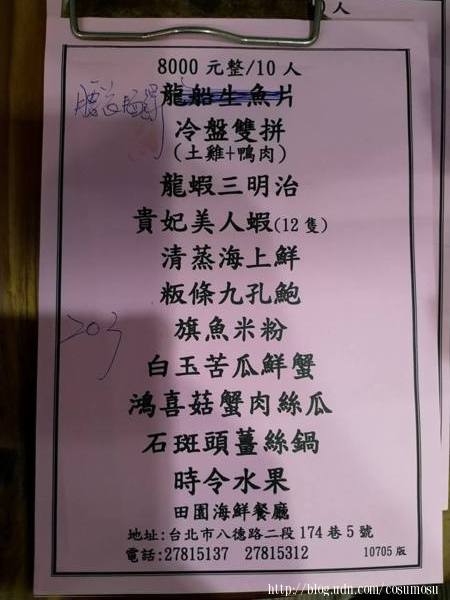 人
8000 元整/10 人
龍船生魚片
冷盤雙拼
(土雞+鴨肉)
龍蝦三明治
貴妃美人蝦(12 隻)
清蒸海上鮮
粄條九孔鮑
旗魚米粉
白玉苦瓜鮮蟹
鴻喜菇蟹肉絲瓜
石斑頭薑絲鍋
時令水果
田園海鮮餐廳
地址:台北市八德路二段 174 巷 5 號
電話:27815137 27815312
10705 版
http://blog.udn.com/cosumosu